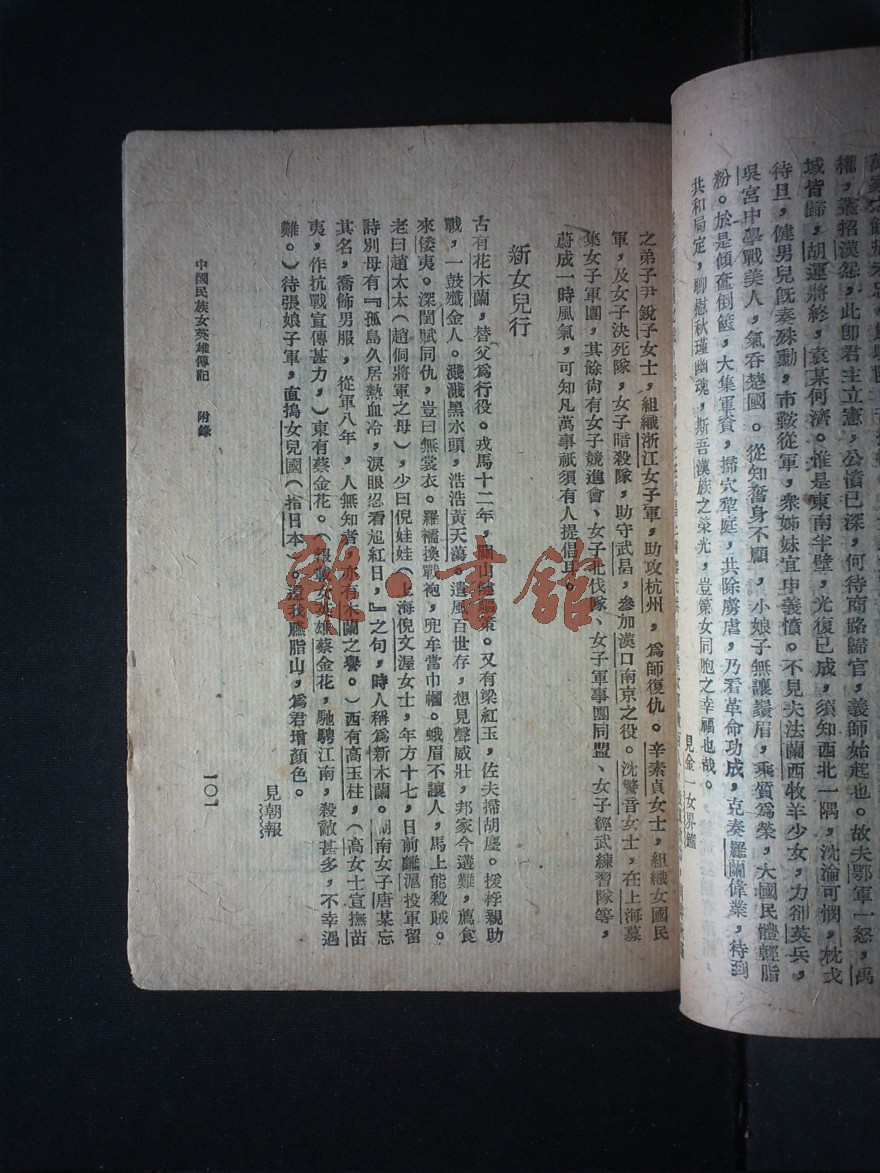 權，叢招漢怨，此卽君主立憲，公憤已深，何待商路歸官，義師始起也。故夫鄂軍一怒，禹
域皆歸，胡運將終，袁某何濟。惟是東南半壁，光復已成，須知西北一隅，沈淪可憫，枕戈
待旦，健男兒旣奏殊勳，市鞍從軍，衆姊妹宜申義憤。不見夫法蘭西牧羊少女，力卻英兵，
吳宮中學戰美人，氣吞楚國。從知奮身不顧，小娘子無讓鬚眉，乘質爲榮，大國民體輕脂
粉。於是傾奩倒篋，大集軍資，掃穴犂庭，共除虜虐，乃看革命功成，克奏羅蘭偉業，待到
共和局定，聊慰秋瑾幽魂，斯吾漢族之榮光，豈第女同胞之幸福也哉。
見金一女界鐘
之弟子尹銳子女士，組織浙江女子軍，助攻杭州，爲師復仇。辛素貞女士，組織女國民
軍，及女子決死隊，女子暗殺隊，助守武昌，參加漢口南京之役。沈警音女士，在上海募
集女子軍團，其餘尚有女子競進會、女子北伐隊、女子軍事團同盟、女子經武練習隊等，
蔚成一時風氣，可知凡萬事祇須有人提倡耳。
新女兒行
古有花木蘭，替父爲行役。戎馬十二年，關山健驅策。又有梁紅玉，佐夫掃胡塵。援桴親助
戰，一鼓殲金人。濺濺黑水頭，浩浩黃天蕩。遺風百世存，想見聲威壯，邦家今遘難，薦食
來倭夷。深閨賦同仇，豈曰無裳衣。羅襦換戰袍，兜牟當巾幗。蛾眉不讓人，馬上能殺賊。
老曰趙太太（趙侗將軍之母），少曰倪娃娃（上海倪文渥女士，年方十七，日前離滬投軍留
詩別母有『孤島久居熱血冷，淚眼忍看旭紅日，』之句，時人稱爲新木蘭。湖南女子唐某忘
其名，喬飾男服，從軍八年，人無知者，亦有木蘭之譽。）西有高玉柱，（高女士宣撫苗
夷，作抗戰宣傳甚力，）東有蔡金花。（銀戟女英雄蔡金花，馳騁江南，殺敵甚多，不幸遇
難。）待張娘子軍，直搗女兒國（指日本）。還我臙脂山，爲君增顏色。
見朝報
中國民族女英雄傳記　附錄
一〇一